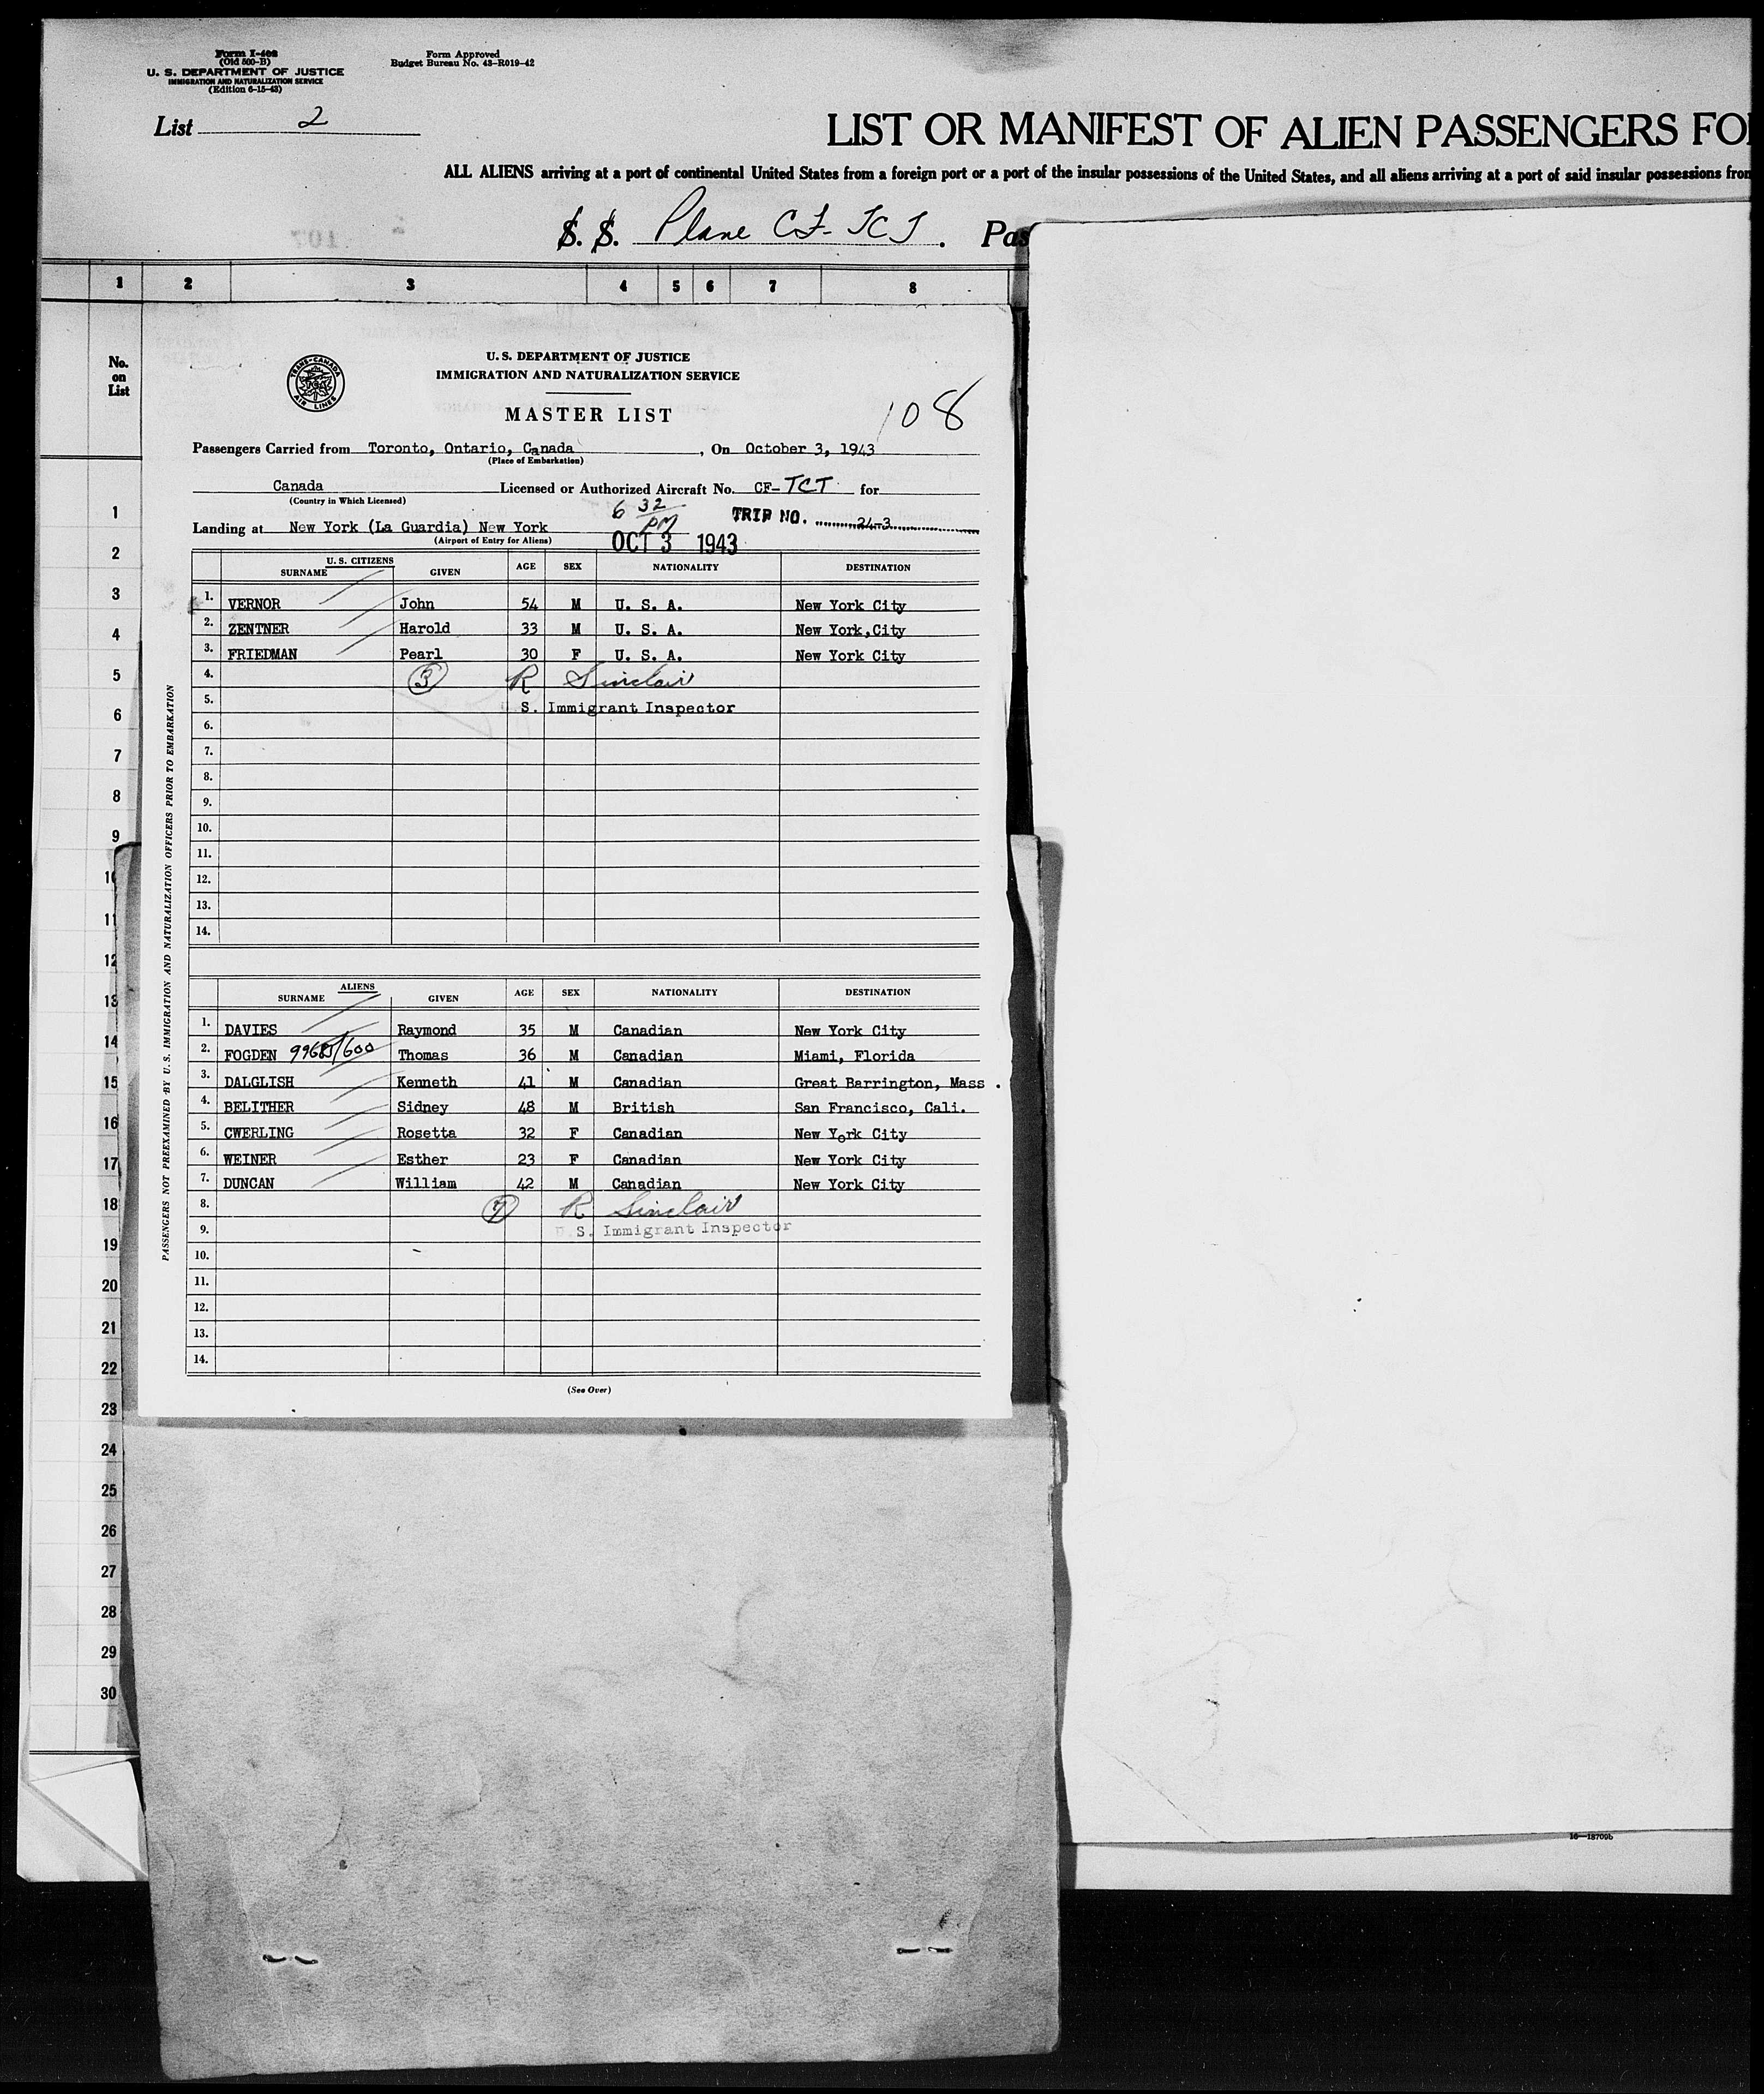 Form I-408
(Old 500-B)
U. S. DEPARTMENT OF JUSTICE
IMMIGRATION AND NATURALIZATION SERVICE
(Edition 6-15-43)
Form Approved
Budget Bureau No. 43-R019-42
List 2
LIST OR MANIFEST OF ALIEN PASSENGERS FO
ALL ALIENS arriving at a port of continental United States from a foreign port or a port of the insular possessions of the United States, and all aliens arriving at a port of said insular possessions from
S. S. Plane CF-TCT . Pas
107
1 2 3 4 5 6 7 8
No.
on
List
1
2
3
4
5
6
7
8
9
10
11
12
13
14
15
16
17
18
19
20
21
22
23
24
25
26
27
28
29
30
TRANS-CANADA
AIR LINES
U. S. DEPARTMENT OF JUSTICE
IMMIGRATION AND NATURALIZATION SERVICE
MASTER LIST
108
Passengers Carried from Toronto, Ontario, Canada , On October 3, 1943
(Place of Embarkation)
Canada Licensed or Authorized Aircraft No. CF-TCT for
(Country in Which Licensed)
6 32 PM
TRIP NO. 24-3
Landing at New York (La Guardia) New York
(Airport of Entry for Aliens)
OCT 3 1943
U. S. CITIZENS
SURNAME GIVEN AGE SEX NATIONALITY DESTINATION
1. VERNOR John 54 M U. S. A. New York City
2. ZENTNER Harold 33 M U. S. A. New York,City
3. FRIEDMAN Pearl 30 F U. S. A. New York City
4. 3 R Sinclair
5. S. Immigrant Inspector
6.
7.
8.
9.
10.
11.
12.
13.
14.
ALIENS
SURNAME GIVEN AGE SEX NATIONALITY DESTINATION
1. DAVIES Raymond 35 M Canadian New York City
2. FOGDEN Thomas 36 M Canadian Miami, Florida
3. DALGLISH Kenneth 41 M Canadian Great Barrington, Mass .
4. BELITHER Sidney 48 M British San Francisco, Cali.
5. CWERLING Rosetta 32 F Canadian New York City
6. WEINER Esther 23 F Canadian New York City
7. DUNCAN William 42 M Canadian New York City
8. 7 R Sinclair
9. U. S. Immigrant Inspector
10.
11.
12.
13.
14.
(See Over)
PASSENGERS NOT PREEXAMINED BY U. S. IMMIGRATION AND NATURALIZATION OFFICERS PRIOR TO EMBARKATION
16—18709b